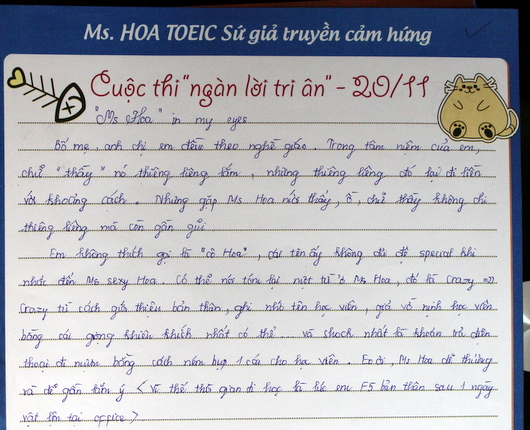 Ms. HOA TOEIC Sứ giả truyền cảm hứng
Cuộc thi "ngàn lời tri ân" - 20/11
"Ms Hoa" in my eyes
Bố mẹ, anh chị em đều theo nghề giáo. Trong tâm niệm của em,
chữ "thầy" nó thiêng liêng lắm, nhưng thiêng liêng đó lại đi liền
với khoảng cách. Nhưng gặp Ms Hoa mới thấy, ồ, chữ thầy không chỉ
thiêng liêng mà còn gần gũi
Em không thích gọi là "cô Hoa", cái tên ấy không đủ độ special khi
nhắc đến Ms sexy Hoa. Có thể nói tóm lại một từ về Ms Hoa, đó là Crazy =))
Crazy từ cách giới thiệu bản thân, ghi nhớ tên học viên, giả vờ nịnh học viên
bằng cái giọng khiêu khích nhất có thể... và shock nhất là khoản trả điện
thoại đi mượn bằng cách ném bụp 1 cái cho học viên. Eo ơi, Ms Hoa dễ thương
và dễ gần lắm ý < Vì thế thời gian đi học là lúc em F5 bản thân sau 1 ngày
vật lộn tại office >